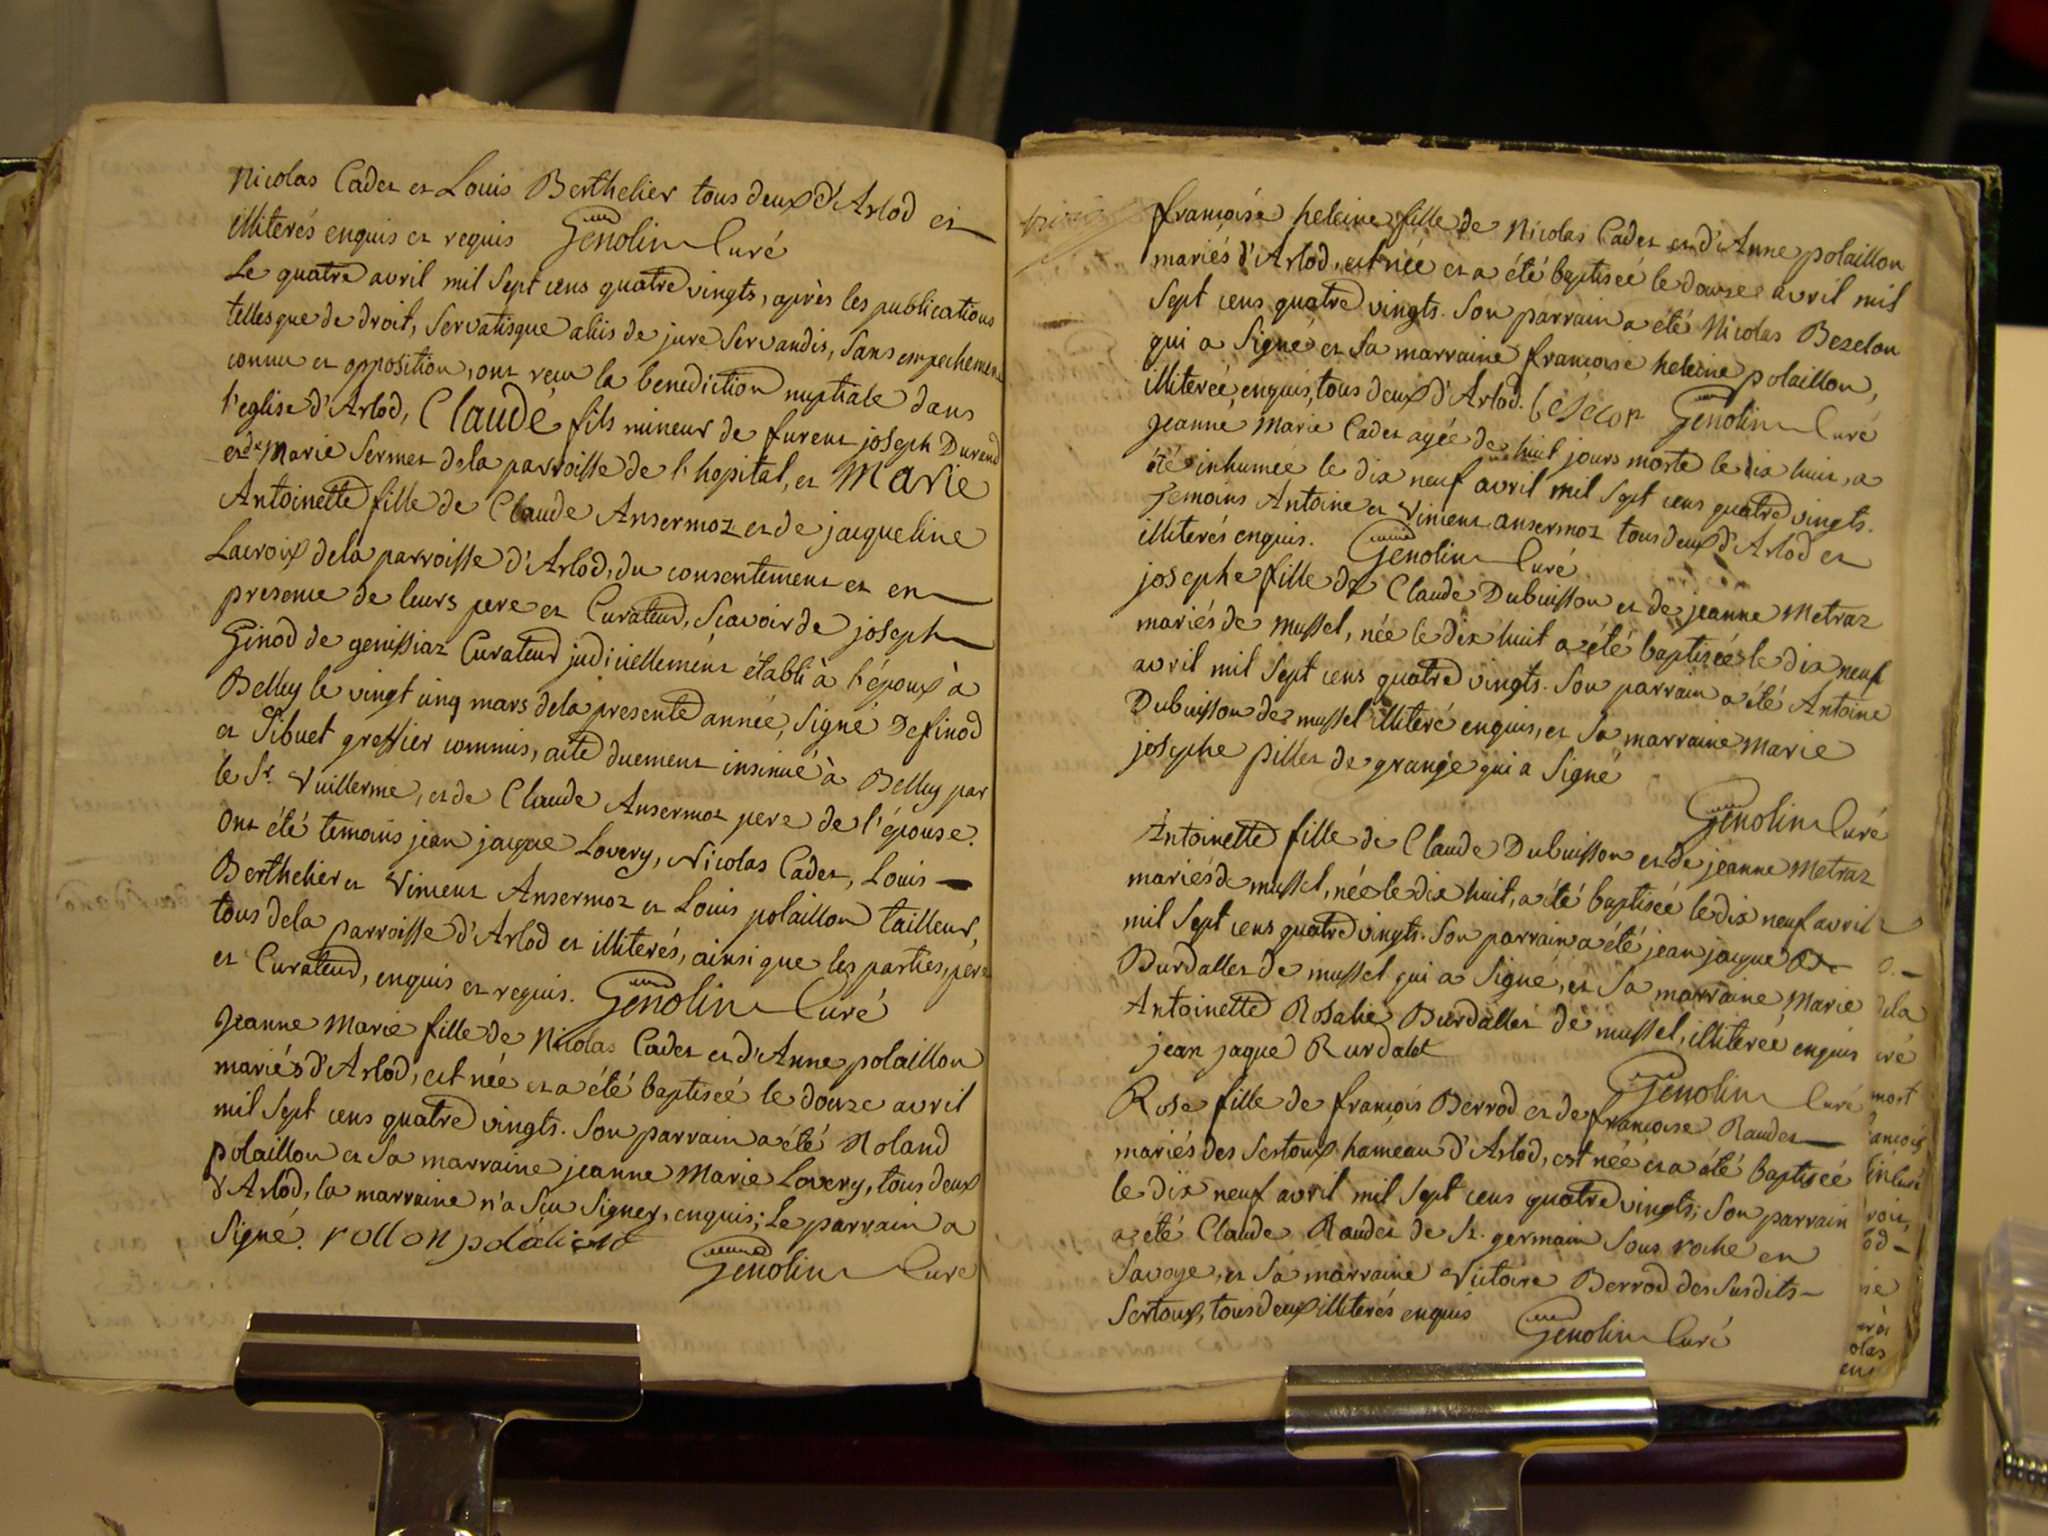 Nicolas Cadet et Louis Berthelier tous deux d'Arlod et
illiterés enquis et requis Genolin Curé
Le quatre avril mil sept cens quatre vingts, après les publications
telles que de droit, servatisque aliis de jure servandis, sans empechement
connu et opposition, ont reçu la benediction nuptiale dans
l'eglise d'Arlod, Claude fils mineur de furent joseph Durand
et de Marie Sermet de la parroisse de l'hopital, et Marie
Antoinette fille de Claude Ansermoz et de jacqueline
Lacroix de la parroisse d'Arlod, du consentement et en
presence de leurs pere et Curateur, sçavoir de joseph
Ginod de genissiaz Curateur judiciellement établi à l'époux à
Belley le vingt cinq mars de la presente année, signé Definod
et Sibuet greffier commis, acte duement insinué à Belley par
le Sr. Vuillerme, et de Claude Ansermoz pere de l'épouse.
Ont été temoins jean jacque Lovery, Nicolas Cadet, Louis
Berthelier et Vincent Ansermoz et Louis polaillon tailleur,
tous de la parroisse d'Arlod et illiterés, ainsi que les parties, pere
et Curateur, enquis et requis. Genolin Curé
Jeanne Marie fille de Nicolas Cadet et d'Anne polaillon
mariés d'Arlod, est née et a été baptiseé le douze avril
mil sept cens quatre vingts. Son parrain a été Roland
polaillon et sa marraine jeanne Marie Lovery, tous deux
d'Arlod, la marraine n'a sçu signer, enquis; Le parrain a
signé. Genolin Curé
françoise heleine fille de Nicolas Cadet et d'Anne polaillon
mariés d'Arlod, est née et a été baptiseé le douze avril mil
sept cens quatre vingts. Son parrain a été Nicolas Bezelon
qui a signé et sa marraine françoise heleine polaillon,
illitereé, enquis, tous deux d'Arlod. besecon Genolin Curé
Jeanne Marie Cadet ageé de huit jours morte le dix huit, a
été inhumeé le dix neuf avril mil sept cens quatre vingts.
Temoins Antoine et Vincent ansermoz tous deux d'Arlod et
illiterés enquis. Genolin Curé
josephe fille de Claude Dubuisson et de jeanne Metraz
mariés de mussel, née le dix huit a été baptiseé le dix neuf
avril mil sept cens quatre vingts. Son parrain a été Antoine
Dubuisson de mussel illiteré enquis, et sa marraine Marie
josephe pillet de grange qui a signé
Genolin Curé
Antoinette fille de Claude Dubuisson et de jeanne Metraz
mariés de mussel, née le dix huit, a été baptiseé le dix neuf avril
mil sept cens quatre vingts. Son parrain a été jean jacque
Burdallet de mussel qui a signé, et sa marraine Marie
Antoinette Rosalie Burdallet de mussel, illitereé enquis
jean jaque Burdalet
Genolin Curé
Rose fille de françois Berrod et de françoise Raudet
mariés des Sertoux hameau d'Arlod, est née et a été baptiseé
le dix neuf avril mil sept cens quatre vingts; Son parrain
a été Claude Raudet de St. germain sous roche en
Savoye, et sa marraine Victoire Berrod des susdits
Sertoux, tous deux illiterés enquis
Genolin Curé